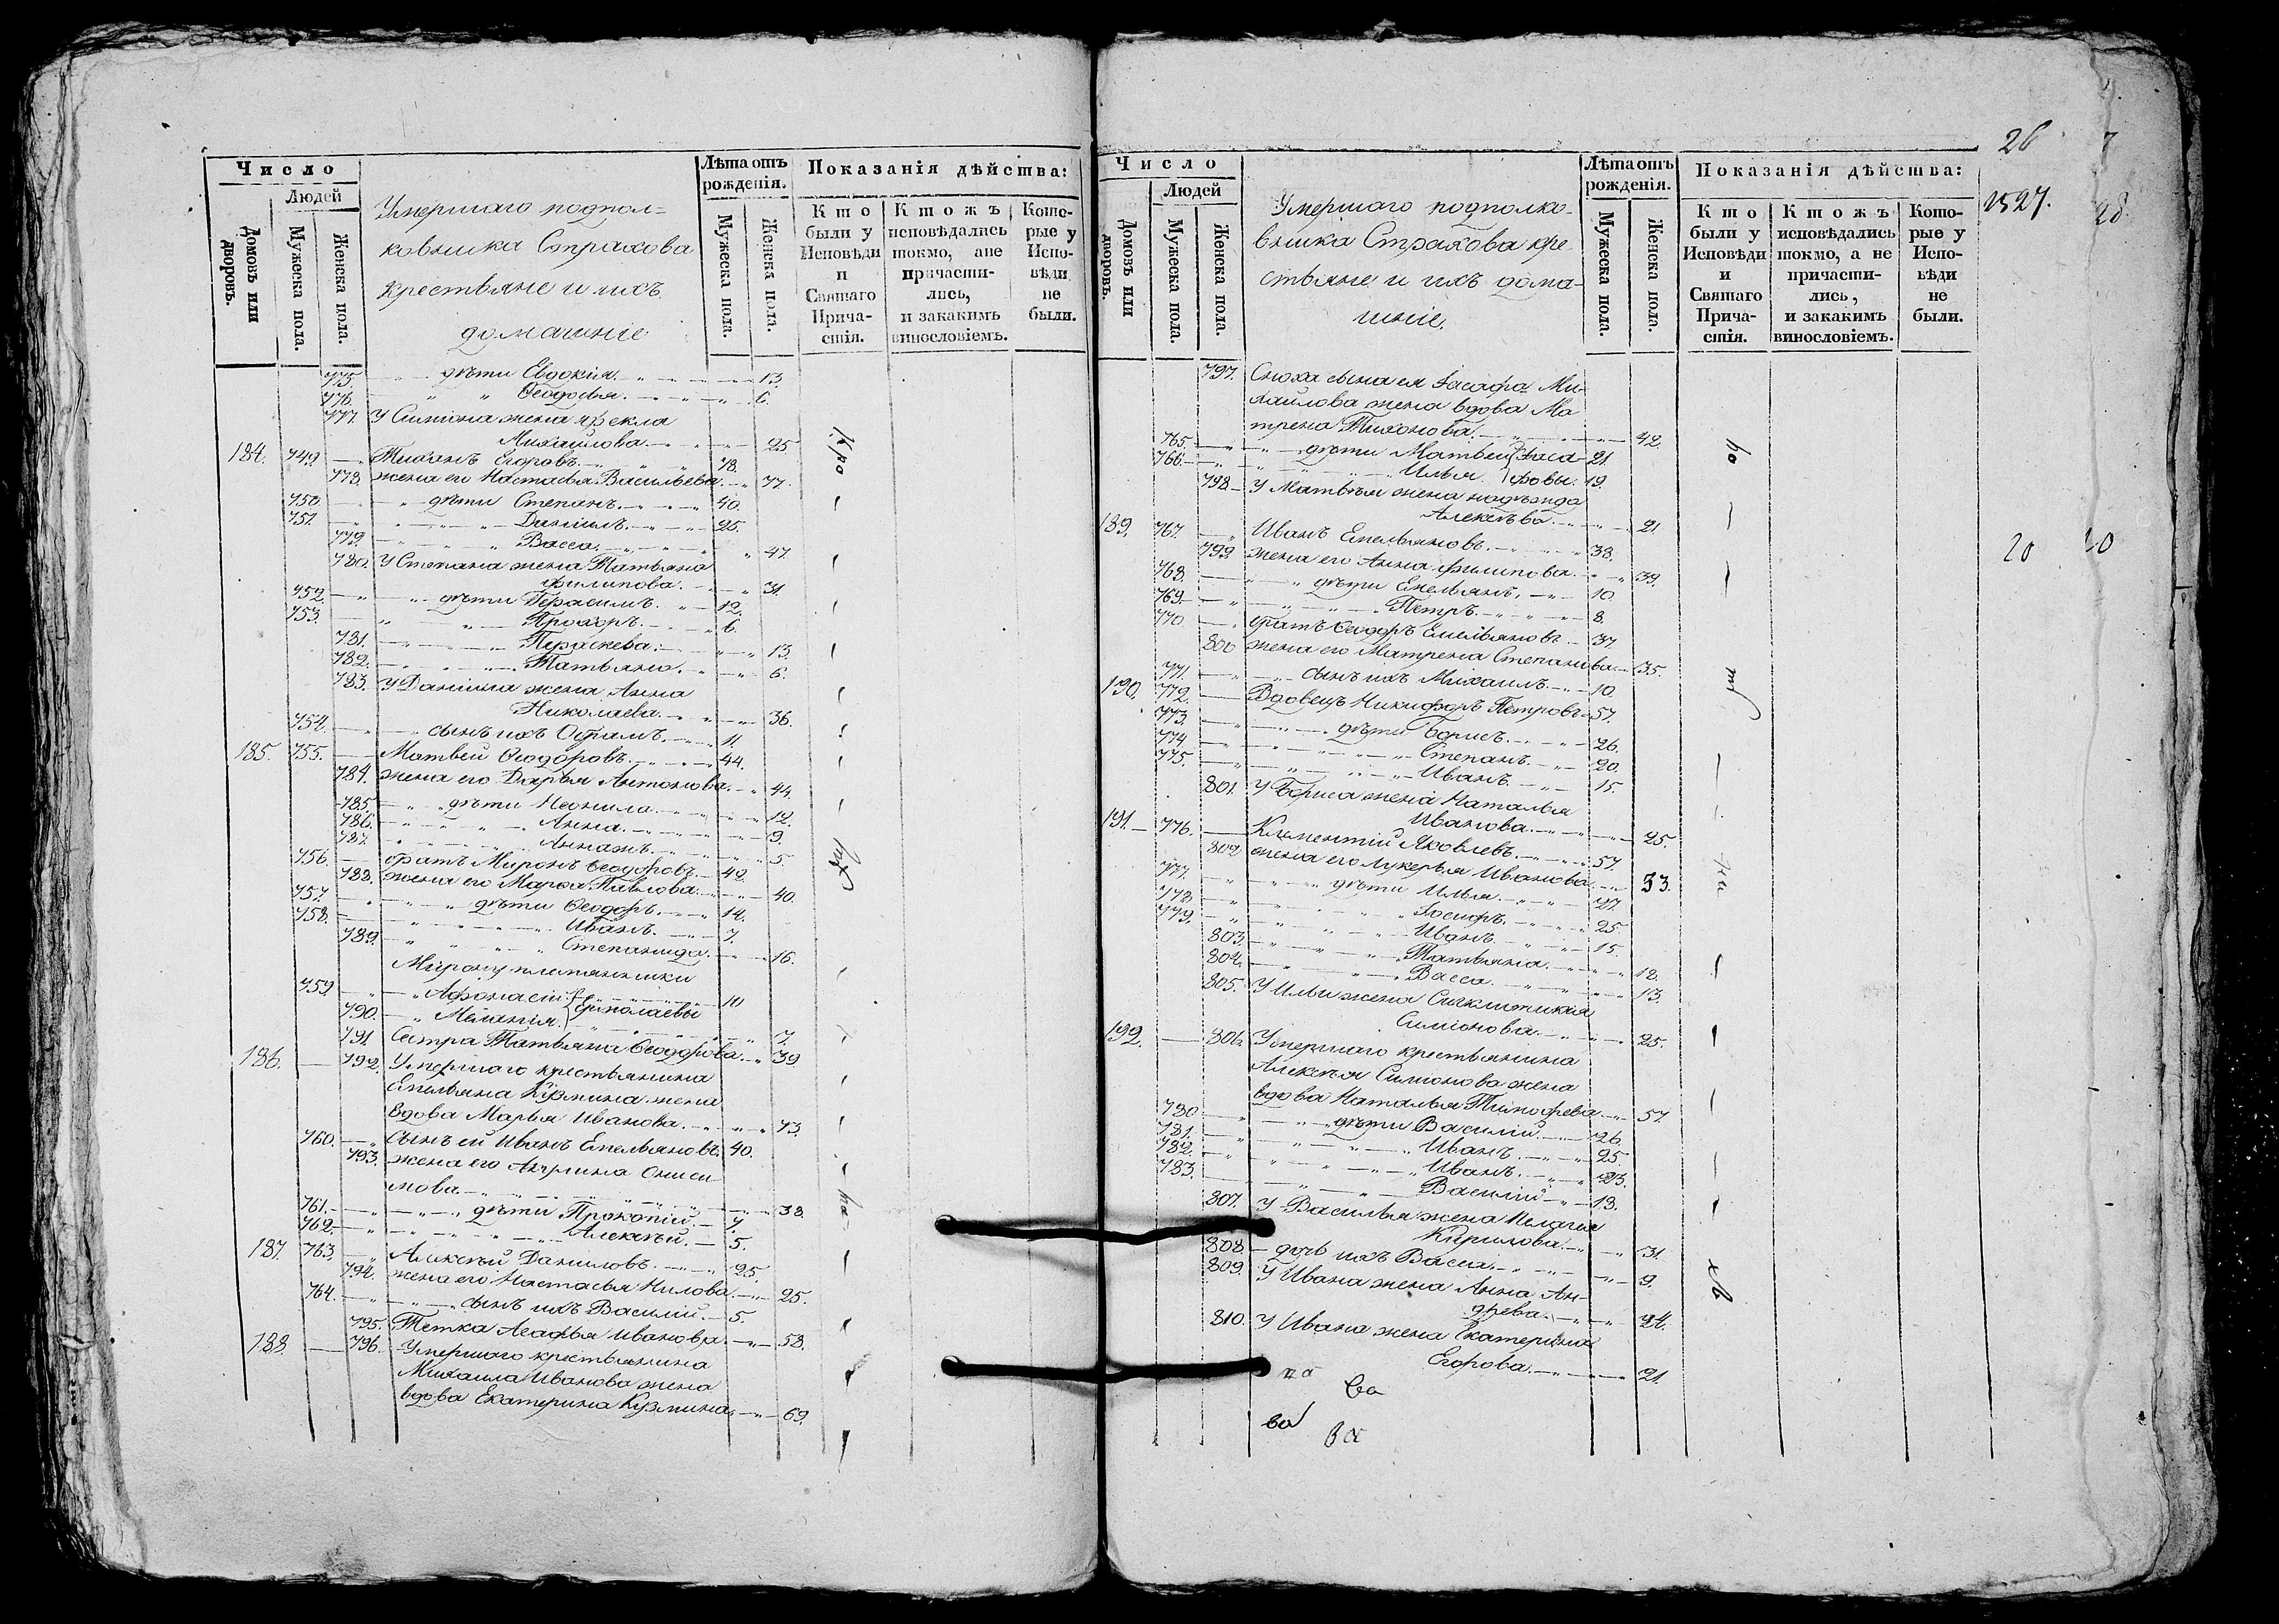 Число
Людей
Домовъ или дворовъ.
Мужеска пола.
Женска пола.
Умершаго подпол=
ковника Страхова
крестьяне и ихъ
домашніе
Лѣта отъ
рожденія.
Мужеска пола.
Женска пола.
Показанія дѣйства:
Кто
были у
Исповѣди
и
Святаго
Прича-
стія.
Ктожъ
исповѣдались
токмо, ане
причасти-
лись,
и закакимъ
винословіемъ.
Кото-
рые у
Испо-
вѣди
не
были.
775. дѣти Евдокія. 13.
776. Ѳеодосья. 6.
777. У Симіона жена Ѳекла
Михайлова. 25
184. 749. Тихонъ Егоровъ. 78.
778. жена его Настасья Васильева. 77.
750. дѣти Степанъ. 40.
751. Даніилъ. 25.
779. Васса. 47
780. У Степана жена Татьяна
Филипова. 31.
752. дѣти Герасимъ. 12.
753. Прохоръ. 6.
781. Параскева. 13.
782. Татьяна. 6.
783. У Даніила жена Анна
Николаева. 36.
754. сынъ ихъ 11.
185. 755. Матвей Ѳеодоровъ. 44.
784. жена его Дарья Антонова. 44.
785. дѣти Неонила. 12.
786. Анна. 9.
787. 5
756. братъ Миронъ Ѳеодоровъ. 42.
788. жена его Марѳа Павлова. 40.
757. дѣти Ѳеодоръ. 14.
758. Иванъ. 7.
789. Степанида. 16.
Мирону племянники
759. Афонасій 10
790. Меланія. Ермолаевы 7.
791 Сестра Татьяна Ѳеодорова. 39
186. 792. Умершаго крестьянина
Емельяна Кузмина жена
вдова Марья Иванова. 73.
760. сынъ ей Иванъ Емельяновъ. 40.
793. жена его Акулина Ониси
мова. 38.
761. дѣти Прокопій. 7.
762. Алексѣй. 5.
187. 763. Алексѣй Даниловъ. 25.
794. жена его Настасья Нилова. 25.
764. сынъ ихъ Василій. 5.
795. Тетка Агафья Иванова. 58.
188. 796. Умершаго крестьянина
Михаила Иванова жена
вдова Екатерина Кузмина. 69.
26
1827.
28
20
Число
Людей
Домовъ или дворовъ.
Мужеска пола.
Женска пола.
Умершаго подполко-
вника Страхова кре
стьяне и ихъ дома-
шніе.
Лѣта отъ
рожденія.
Мужеска пола.
Женска пола.
Показанія дѣйства:
Кто
были у
Исповѣди
и
Святаго
Прича-
стія.
Ктожъ
исповѣдались
токмо, а не
причасти-
лись,
и закакимъ
винословіемъ.
Кото-
рые у
Испо-
вѣди
не
были.
797. Сноха сына ея Іасафа Ми-
хайлова жена вдова Ма
трена Тихонова. 42.
765. дѣти Матвей Іаса- 21.
766. Илья фовы. 19.
798 У Матвѣя жена надѣжда
Алексѣва. 21.
189. 767. Иванъ Емельяновъ. 38.
799 жена его Анна Филипова. 39.
768. дѣти Емельянъ. 10.
769. Петръ. 8.
770. братъ Ѳеодоръ Емельяновъ. 37.
800 жена его Матрена Степанова. 35.
771. сынъ ихъ Михаилъ. 10.
190. 772. Вдовецъ Никифоръ Петровъ. 57.
773. дѣти Борисъ. 26.
774 Степанъ. 20.
775. Иванъ. 15.
801. У Бориса жена Наталья
Иванова. 25.
191. 776. Климентій Яковлевъ. 57.
802 жена его Лукерья Иванова. 33.
777. дѣти Илья. 27.
778 Іосифъ. 25.
779. Иванъ. 15.
803. Татьяна. 18.
804. Васса. 13.
805. У Ильи жена Сигклитикія
Симіонова. 25.
192. 806. Умершаго крестьянина
Алексѣя Симіонова жена
вдова Наталья Тимофева. 57.
780 дѣти Василій. 26.
781. Иванъ. 25
782. Иванъ. 23.
783. Василій 13.
807. У Василья жена Пелагія
Кирилова. 31.
808. дочь ихъ Васса. 9.
809. У Ивана жена Анна Ан-
древа. 24.
810. У Ивана жена Екатерина
Егорова. 21.
ва
ва